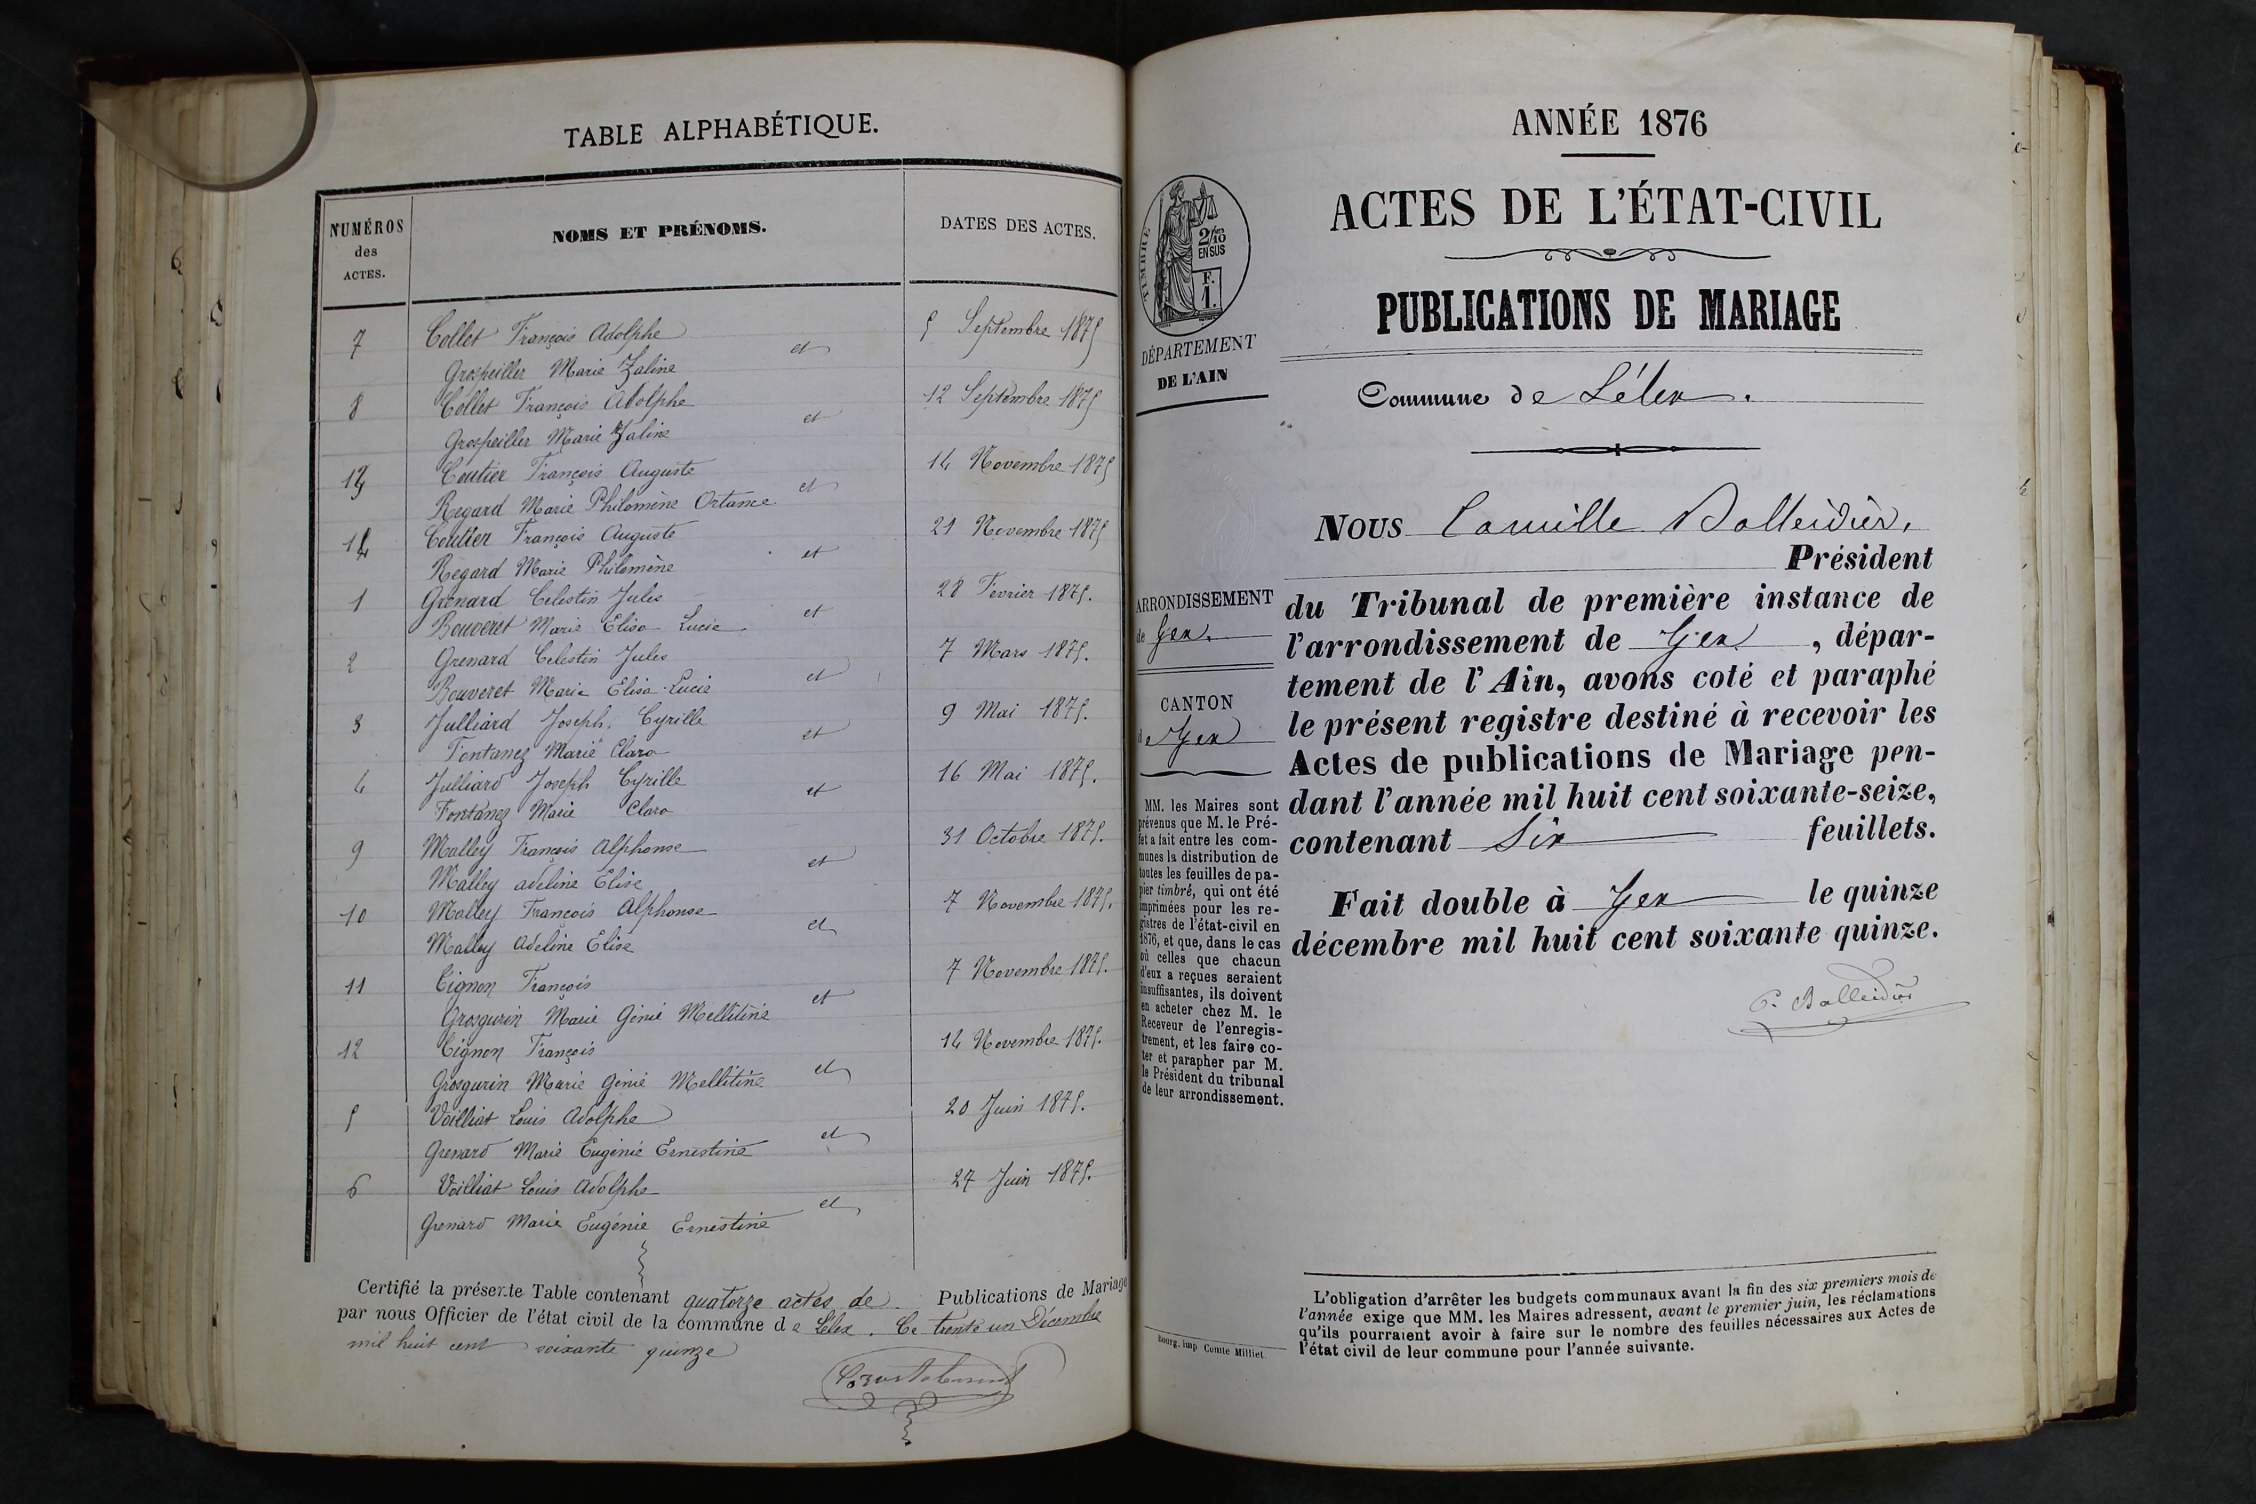 TABLE ALPHABÉTIQUE.
NUMÉROS
des
ACTES.
NOMS ET PRÉNOMS.
DATES DES ACTES.
7 Collet François Adolphe 5 Septembre 1875
et
Grospeiller Marie Zaline
8 Collet François Adolphe 12 Septembre 1875
et
Grospeiller Marie Zaline
13 Coutier François Auguste 14 Novembre 1875
et
Regard Marie Philomène Ortance
14 Coutier François Auguste 21 Novembre 1875
et
Regard Marie Philomène
1 Grenard Celestin Jules 28 Fevrier 1875.
et
Bouveret Marie Elisa Lucie
2 Grenard Celestin Jules 7 Mars 1875.
et
Bouveret Marie Elisa Lucie
3 Julliard Joseph Cyrille 9 Mai 1875.
et
Fontanez Marie Clara
4 Julliard Joseph Cyrille 16 Mai 1875.
et
Fontanez Marie Clara
9 Malley François Alphonse 31 Octobre 1875.
et
Malley adeline Elise
10 Malley François Alphonse 7 Novembre 1875.
et
Malley Adeline Elise
11 Cignon François 7 Novembre 1875.
et
Grosgurin Marie Génie Mellitine
12 Cignon François 14 Novembre 1875.
et
Grosgurin Marie Génie Mellitine
5 Voilliat Louis Adolphe 20 Juin 1875.
et
Grenard Marie Eugénie Ernestine
6 Voilliat Louis Adolphe 27 Juin 1875.
et
Grenard Marie Eugénie Ernestine
Certifié la présente Table contenant quatorze actes de Publications de Mariage
par nous Officier de l'état civil de la commune de Lélex. Ce trente un Décembre
mil huit cent soixante quinze
ANNÉE 1876
ACTES DE L'ÉTAT-CIVIL
PUBLICATIONS DE MARIAGE
TIMBRE
2/10
EN SUS
F.
1.
DÉPARTEMENT
DE L'AIN
Commune de Lélex.
ARRONDISSEMENT
de Gex.
CANTON
de Gex
MM. les Maires sont
prévenus que M. le Pré-
fet a fait entre les com-
munes la distribution de
toutes les feuilles de pa-
pier timbré, qui ont été
imprimées pour les re-
gistres de l'état-civil en
1876, et que, dans le cas
où celles que chacun
d'eux a reçues seraient
insuffisantes, ils doivent
en acheter chez M. le
Receveur de l'enregis-
trement, et les faire co-
ter et parapher par M.
le Président du tribunal
de leur arrondissement.
NOUS Camille Balleidier,
Président
du Tribunal de première instance de
l'arrondissement de Gex, dépar-
tement de l'Ain, avons coté et paraphé
le présent registre destiné à recevoir les
Actes de publications de Mariage pen-
dant l'année mil huit cent soixante-seize,
contenant Six feuillets.
Fait double à Gex le quinze
décembre mil huit cent soixante quinze.
C. Balleidier
L'obligation d'arrêter les budgets communaux avant la fin des six premiers mois de
l'année exige que MM. les Maires adressent, avant le premier juin, les réclamations
qu'ils pourraient avoir à faire sur le nombre des feuilles nécessaires aux Actes de
l'état civil de leur commune pour l'année suivante.
Bourg, imp Comte Milliet.